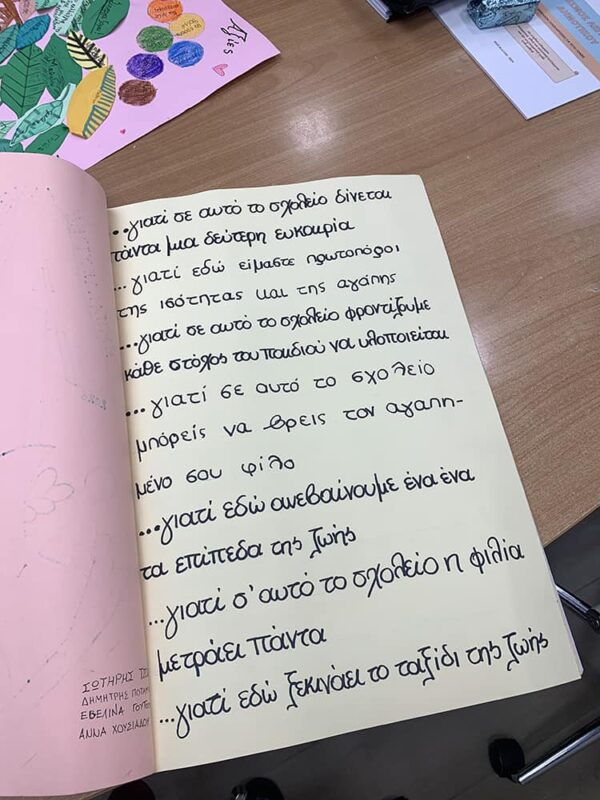 Αξίες
...γιατί σε αυτό το σχολείο δίνεται
πάντα μια δεύτερη ευκαιρία
...γιατί εδώ είμαστε πρωτοπόροι
της ισότητας και της αγάπης
...γιατί σε αυτό το σχολείο φροντίζουμε
κάθε στόχος του παιδιού να υλοποιείται
...γιατί σε αυτό το σχολείο
μπόρείς να βρεις τον αγαπη-
μένο σου φίλο
...γιατί εδώ ανεβαίνουμε ένα ένα
τα επίπεδα της ζωής
...γιατί σ' αυτό το σχολείο η φιλία
μετράει πάντα
...γιατί εδώ ξεκινάει το ταξίδι της ζωής
ΣΩΤΗΡΗΣ
ΔΗΜΗΤΡΗΣ
ΕΒΕΛΙΝΑ
ΑΝΝΑ ΧΟΥΣΙΑΔΟΥ